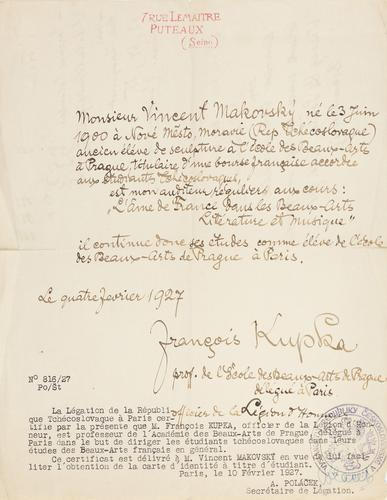 7 RUE LEMAITRE
PUTEAUX
(Seine)
Monsieur Vincent Makovský né le 3 Juin
1900 à Nové Město, Moravie (Rep. Tchécoslovaque)
ancien élève de sculpture à l'École des Beaux-Arts
à Prague, titulaire d'une bourse française accordée
aux étudiants Tchécoslovaques,
est mon auditeur régulier aux cours:
„L'Âme de France dans les Beaux-Arts
Literature et Musique"
il continue donc ses études comme élève de l'école
des Beaux-Arts de Prague à Paris.
Le quatre fevrier 1927
François Kupka
prof. de l'École des Beaux-Arts de Prague
délégué à Paris
officier de la Légion d'Honneur
N° 816/27
Po/St
La Légation de la Républi-
que Tchécoslovaque à Paris cer-
tifie par la présente que M. François KUPKA, officier de la Légion d'Hon-
neur, est professeur de l'Académie des Beaux-Arts de Prague, délégué à
Paris dans le but de diriger les étudiants tchécoslovaques dans leurs
études des Beaux-Arts français en général.
Ce certificat est délivré à M. Vincent MAKOVSKY en vue de lui faci-
liter l'obtention de la carte d'identité à titre d'étudiant.
Paris, le 10 Février 1927.
A. POLÁČEK,
Secrétaire de Légation.